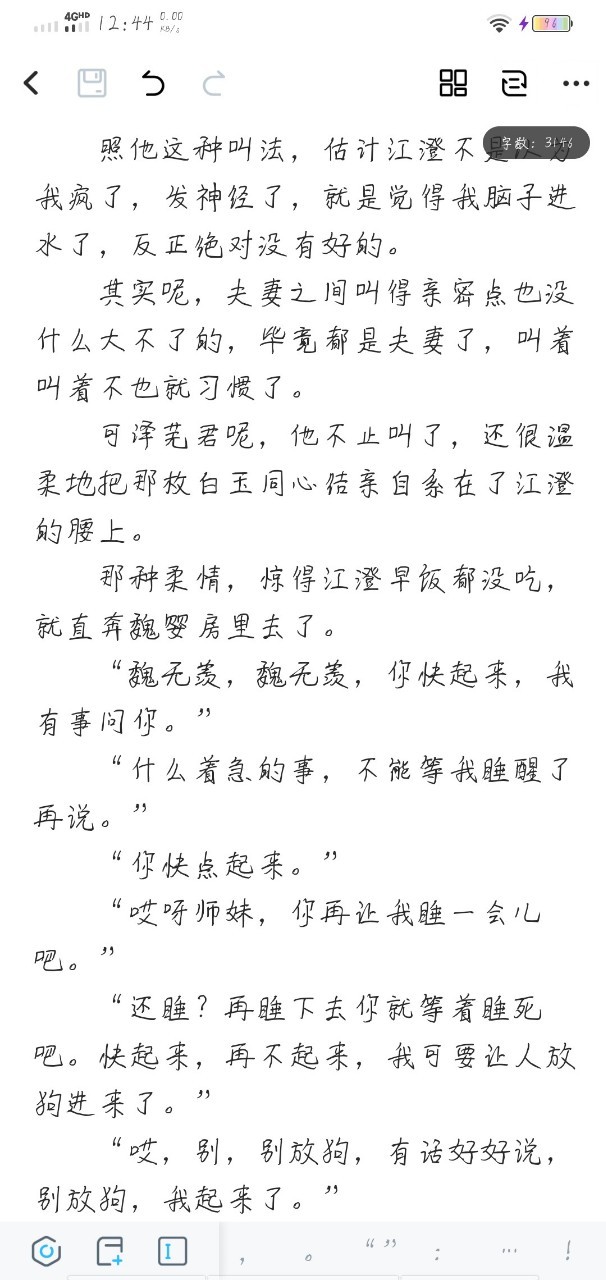 4GHD 12:44 0.00 KB/s 96
字数: 3146
照他这种叫法，估计江澄不是认为
我疯了，发神经了，就是觉得我脑子进
水了，反正绝对没有好的。
其实呢，夫妻之间叫得亲密点也没
什么大不了的，毕竟都是夫妻了，叫着
叫着不也就习惯了。
可泽芜君呢，他不止叫了，还很温
柔地把那枚白玉同心结亲自系在了江澄
的腰上。
那种柔情，惊得江澄早饭都没吃，
就直奔魏婴房里去了。
“魏无羡，魏无羡，你快起来，我
有事问你。”
“什么着急的事，不能等我睡醒了
再说。”
“你快点起来。”
“哎呀师妹，你再让我睡一会儿
吧。”
“还睡？再睡下去你就等着睡死
吧。快起来，再不起来，我可要让人放
狗进来了。”
“哎，别，别放狗，有话好好说，
别放狗，我起来了。”
， 。 “” ： … ！